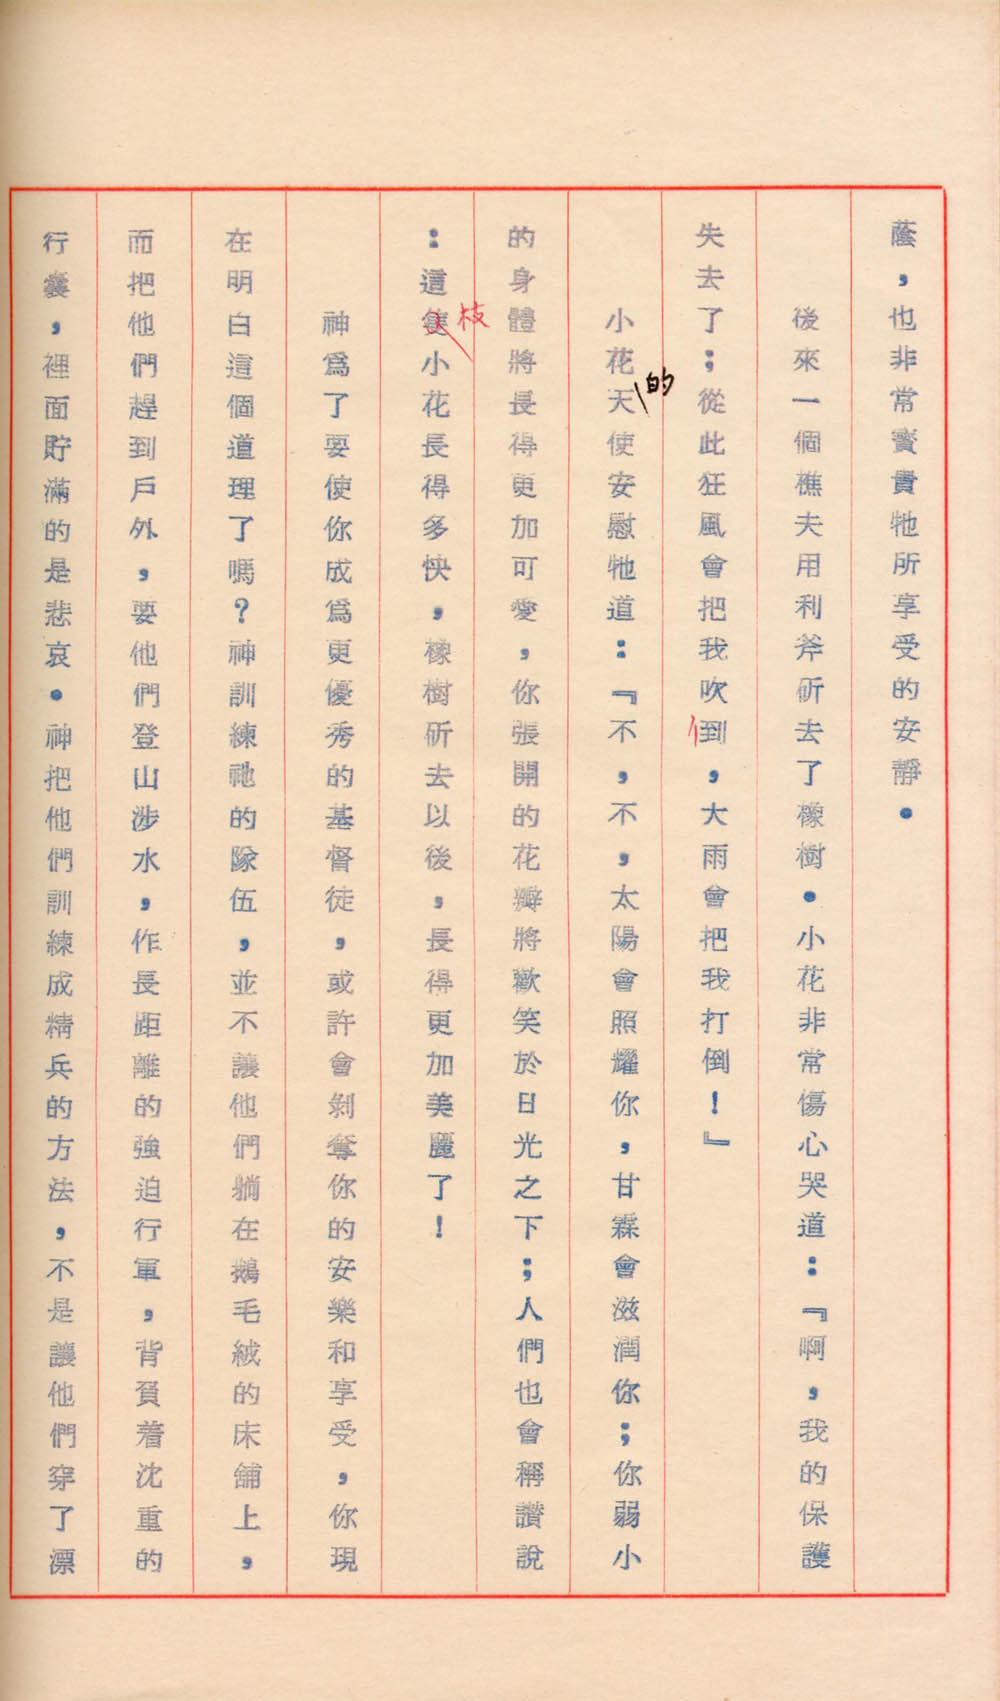 蔭，也非常寶貴牠所享受的安靜．
後來一個樵夫用利斧斫去了橡樹．小花非常傷心哭道：『啊，我的保護
失去了；從此狂風會把我吹到，大雨會把我打倒！』
亻
小花天使安慰牠道：『不，不，太陽會照耀你，甘霖會滋潤你；你弱小
的
的身體將長得更加可愛，你張開的花瓣將歡笑於日光之下；人們也會稱讚說
：這隻小花長得多快，橡樹斫去以後，長得更加美麗了！
枝
神爲了要使你成爲更優秀的基督徒，或許會剝奪你的安樂和享受，你現
在明白這個道理了嗎？神訓練祂的隊伍，並不讓他們躺在鵝毛絨的床舖上，
而把他們趕到戶外，要他們登山涉水，作長距離的強迫行軍，背負着沈重的
行囊，裡面貯滿的是悲哀．神把他們訓練成精兵的方法，不是讓他們穿了漂